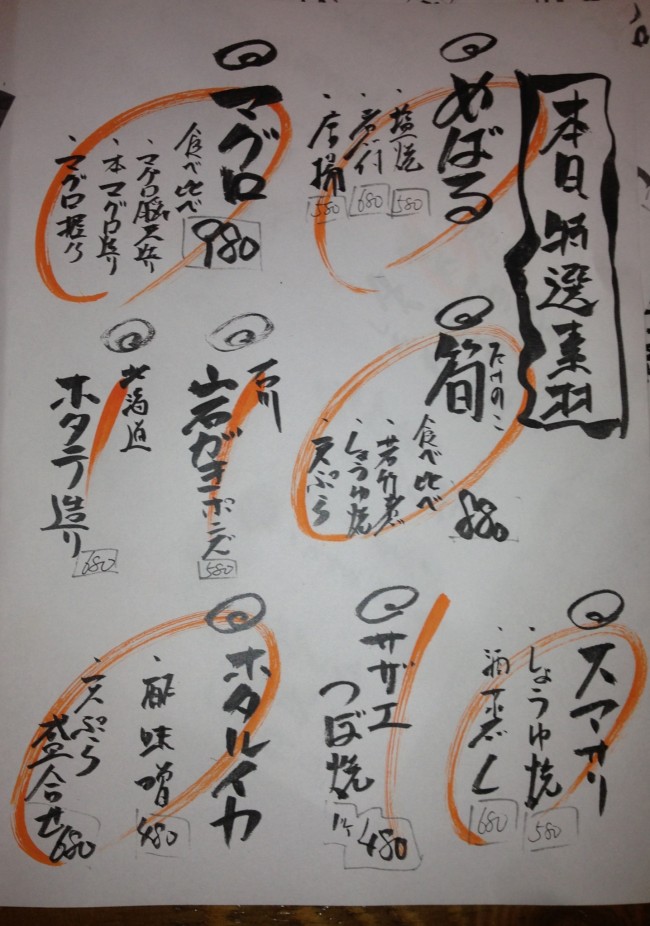 本日特選素材
めばる
・塩焼 580
・煮付 680
・唐揚 580
マグロ
食べ比べ 980
・マグロ脳天造り
・本マグロ造り
・マグロ握り
たけのこ
筍
食べ比べ 880
・若竹煮
・しょうゆ焼
・天ぷら
石川
岩ガキポンズ 580
北海道
ホタテ造り 680
スアサリ
・しょうゆ焼 580
・酒蒸し 680
サザエ
つぼ焼 1ケ 480
ホタルイカ
・酢味噌 480
・天ぷら
盛合せ 680